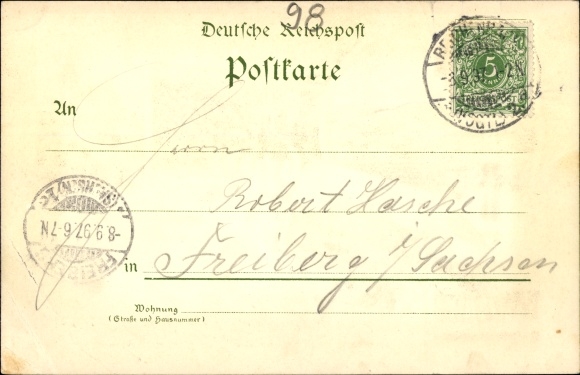 98
Deutsche Reichspost
Postkarte
5
An
Herrn
Robert Hasche
-8.9.97.6-7N
in Freiberg i/Sachsen
Wohnung
(Straße und Hausnummer)